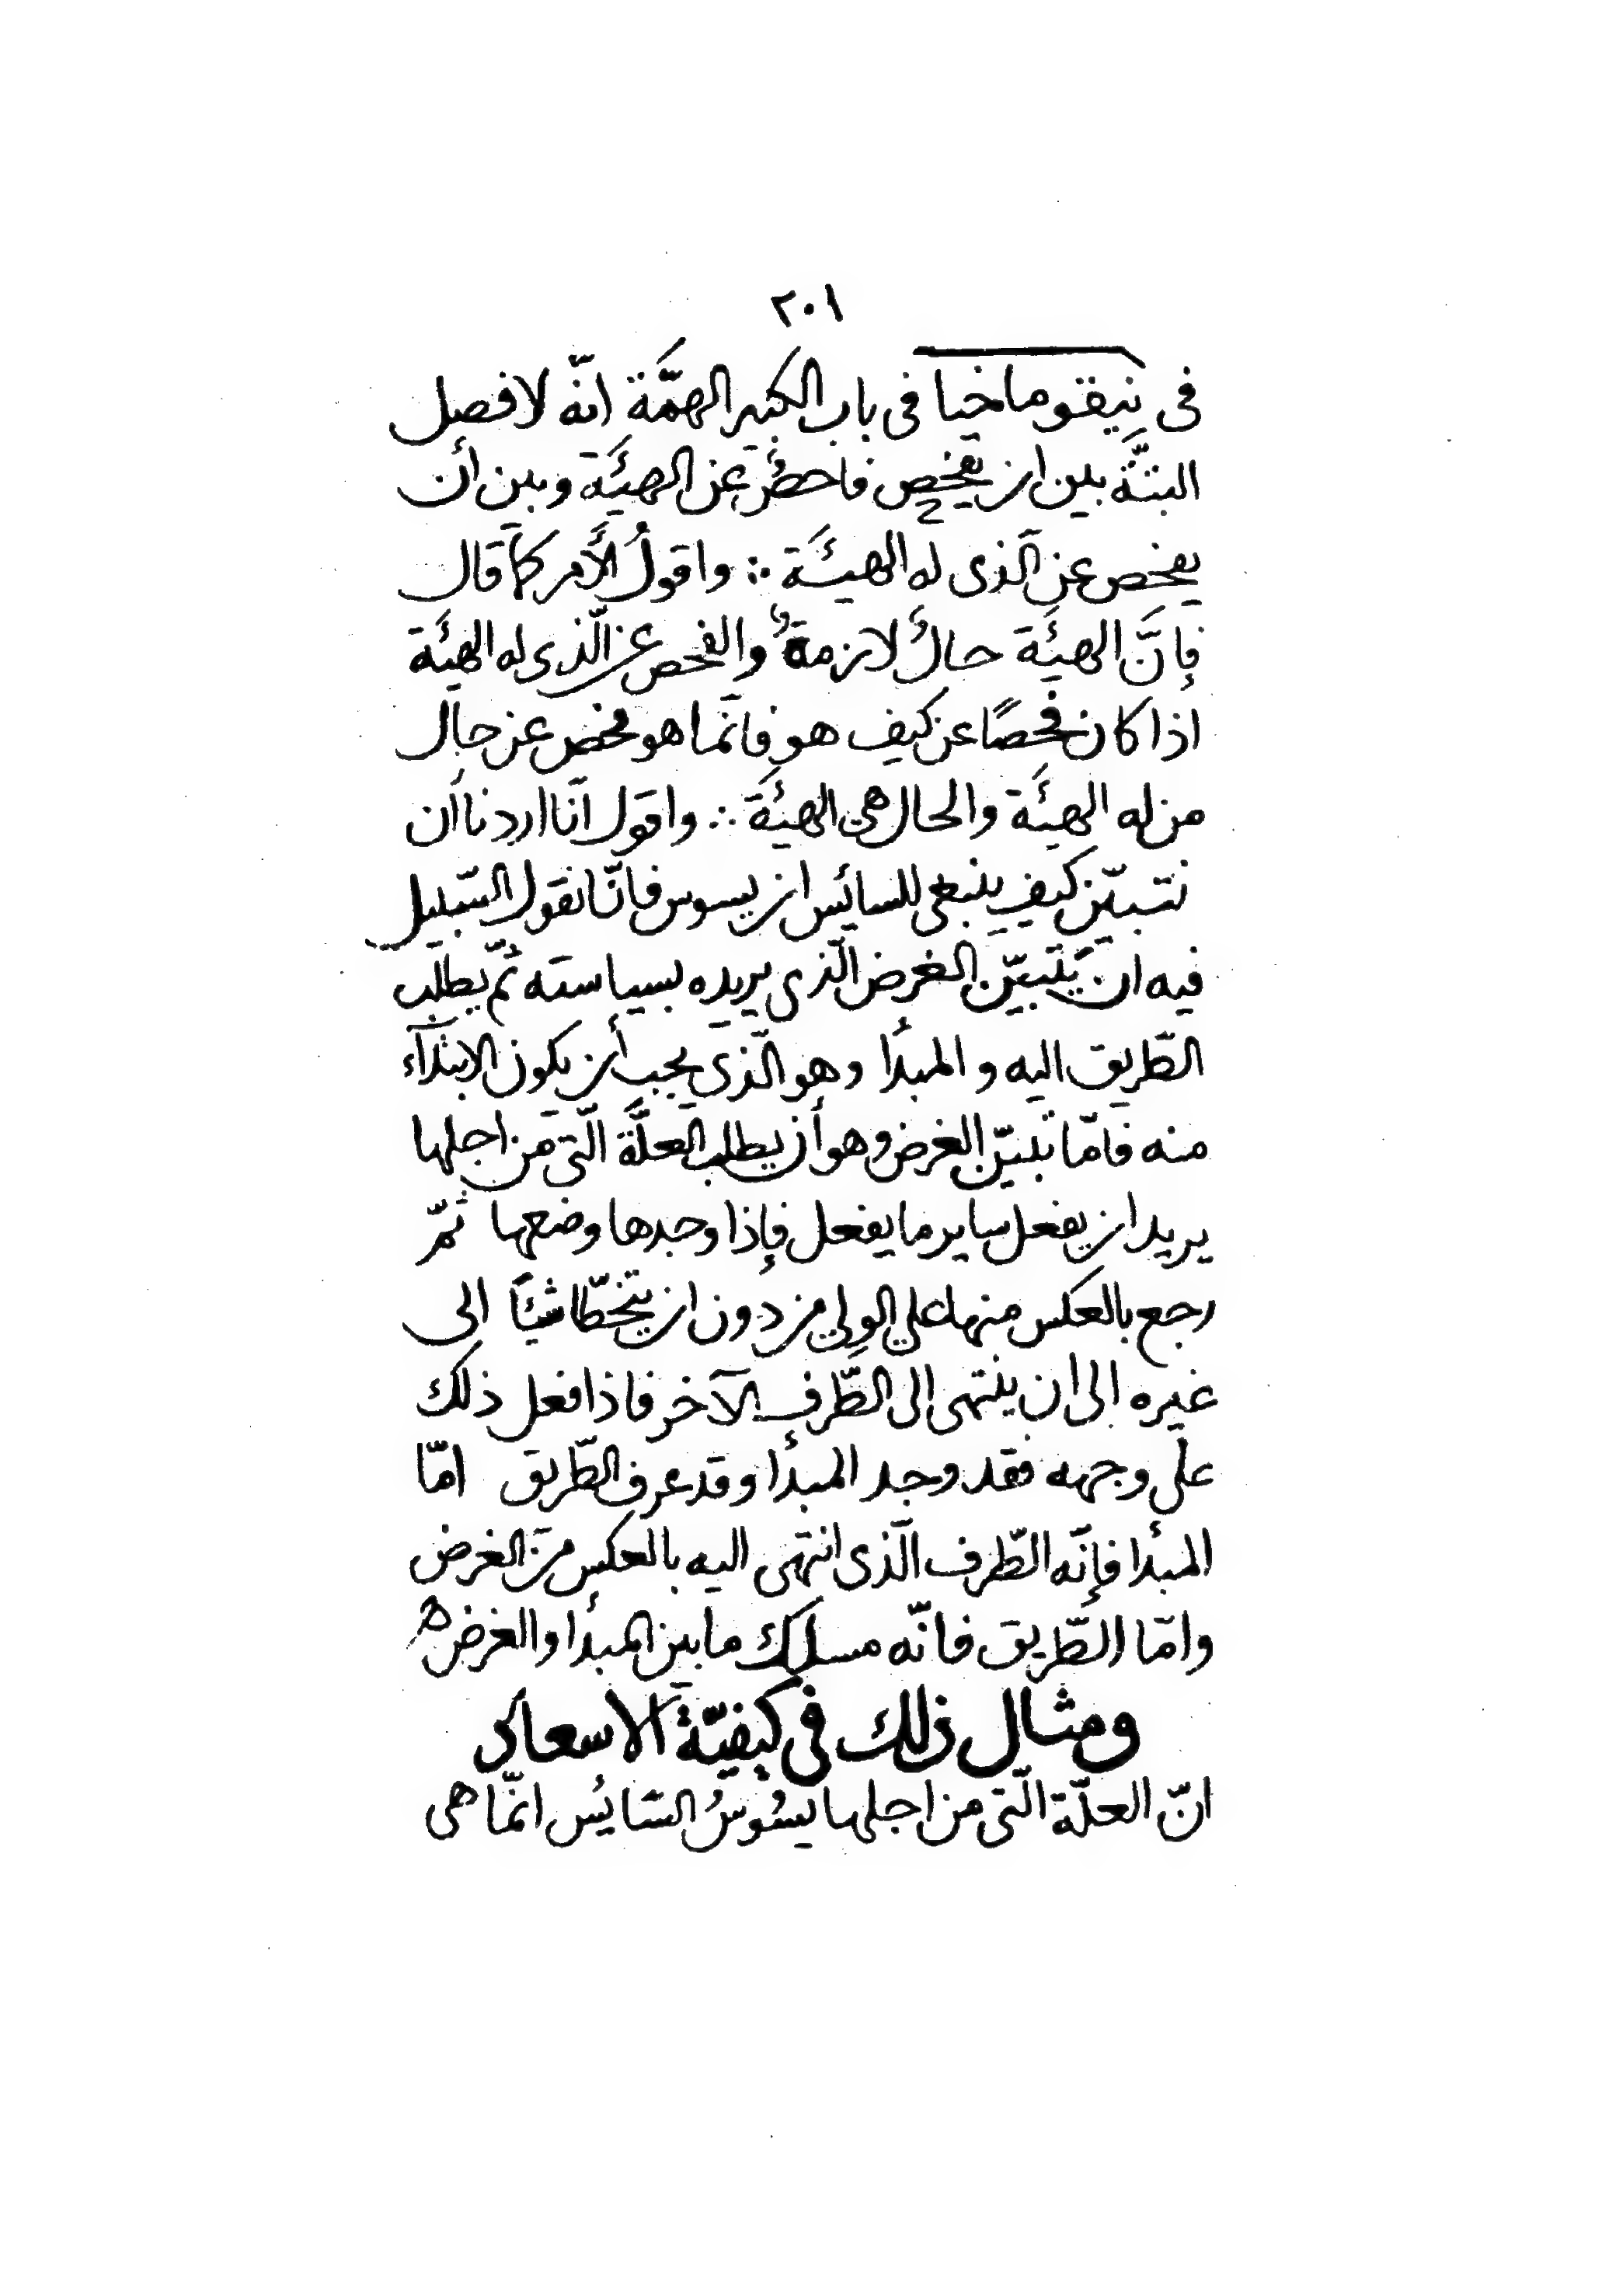 ٢٠١
فى نيقوماخيا فى باب الكبير الهمَّة انّه لا فصل
البتَّة بين ان يفحص فاحصٌ عن الهيئَة وبين أن
يفحص عن الّذى له الهيئَة ∴ واقولُ الأَمر كمَا قال
فإنَّ الهيئَة حالٌ لازمةٌ والفحص عن الّذى له الهيئَة
اذا كان فحصًا عن كيف هو فانّما هو فحص عن حال
من له الهيئَة والحال هى الهيئَة ∴ واقول انّا اردنا أن
نتبيّن كيف ينبغى للسائس ان يسوس فانّا نقول السّبيل
فيه ان يَتبيّن الغرض الّذى يريده بسياسته ثمّ يطلب
الطّريق اليه والمبدأ وهو الّذى يجب أن يكون الابتدآء
منه فامّا تبيّن الغرض وهو أن يطلب العلَّة الّتى من اجلها
يريد ان يفعل ساير ما يفعل فإذا وجدها وضعها ثمّ
رجع بالعكس منها على الولِي من دون ان يتخطّا شيئًا الى
غيره الى ان ينتهى الى الطّرف الآخر فاذا فعل ذلك
على وجهه فقد وجد المبدأ وقد عرف الطّريق امّا
المبدأ فإنّه الطّرف الّذى انتهى اليه بالعكس من الغرض
وامّا الطّريق فانّه مسلك ما بين المبدأ والغرض
ومثال ذلك فى كيفيّة الاسعاد
انّ العلّة الّتى من اجلها يسُوسُ السّايُس انّما هى